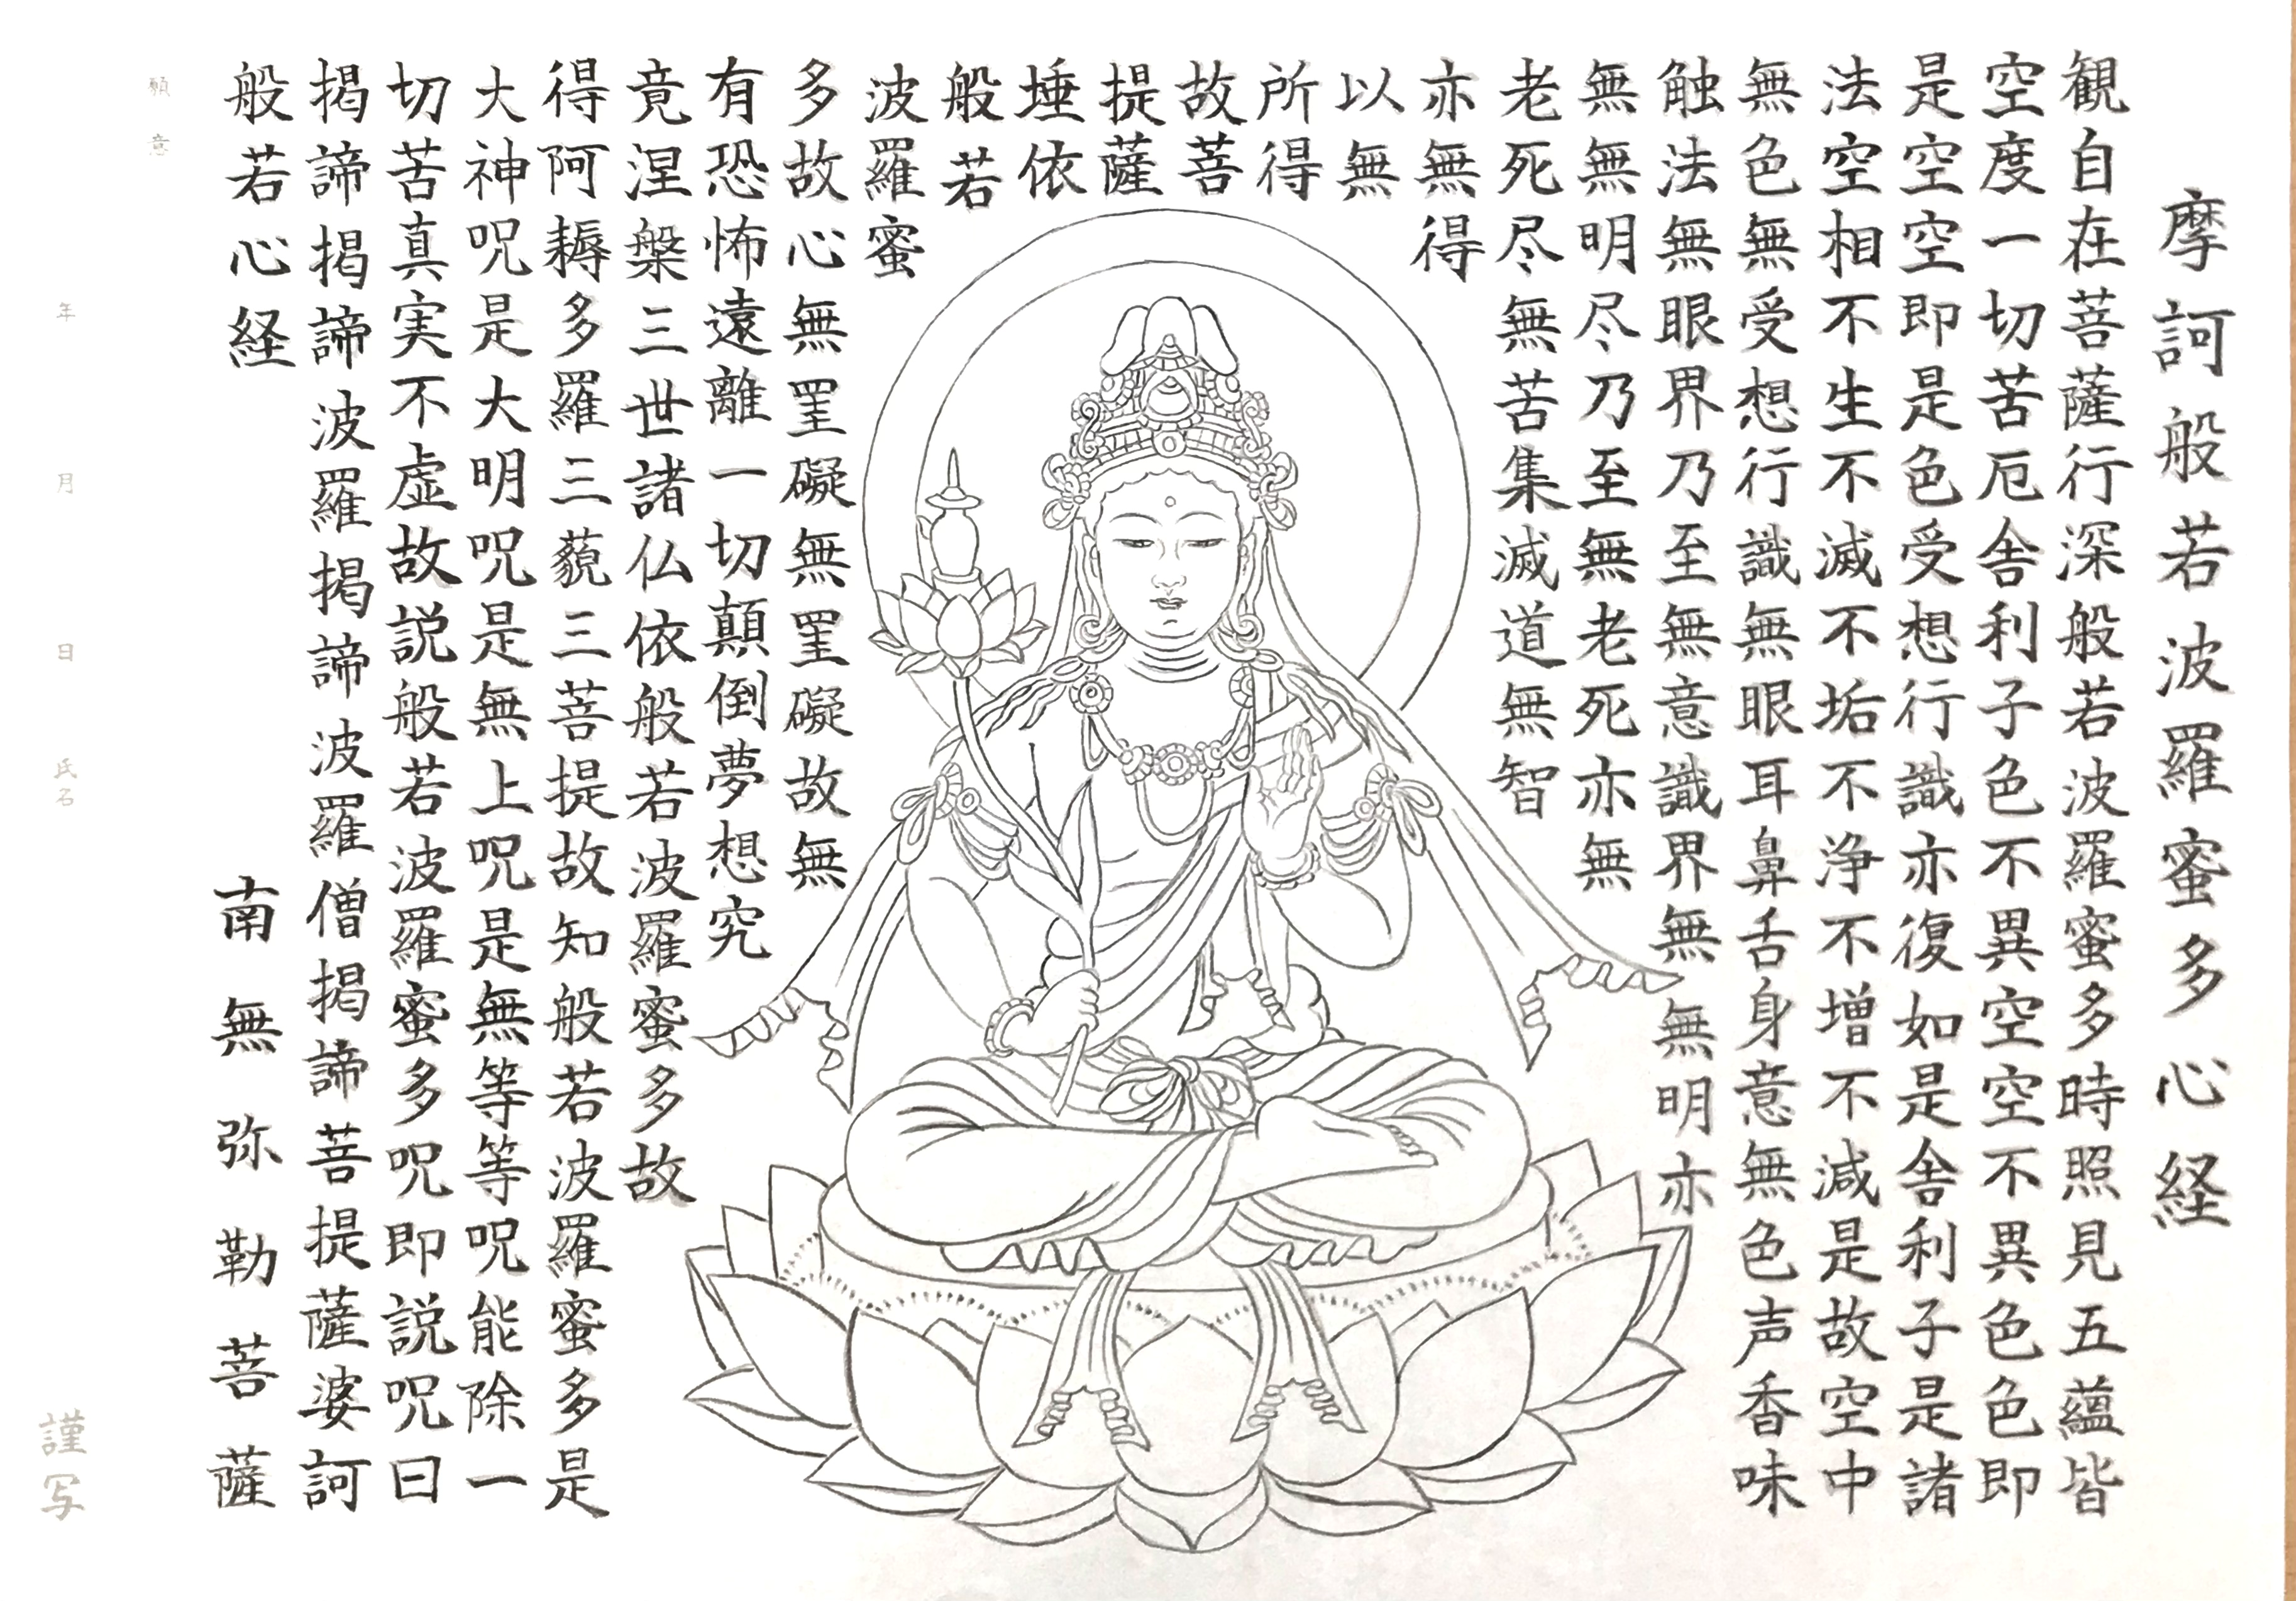 摩訶般若波羅蜜多心経
観自在菩薩行深般若波羅蜜多時照見五蘊皆
空度一切苦厄舎利子色不異空空不異色色即
是空空即是色受想行識亦復如是舎利子是諸
法空相不生不滅不垢不浄不増不減是故空中
無色無受想行識無眼耳鼻舌身意無色声香味
触法無眼界乃至無意識界無無明亦
無無明尽乃至無老死亦無
老死尽無苦集滅道無智
亦無得
以無
所得
故菩
提薩
埵依
般若
波羅蜜
多故心無罣礙無罣礙故無
有恐怖遠離一切顛倒夢想究
竟涅槃三世諸仏依般若波羅蜜多故
得阿耨多羅三藐三菩提故知般若波羅蜜多是
大神呪是大明呪是無上呪是無等等呪能除一
切苦真実不虚故説般若波羅蜜多呪即説呪曰
掲諦掲諦波羅掲諦波羅僧掲諦菩提薩婆訶
般若心経 南無弥勒菩薩
願意
年 月 日 氏名 謹写